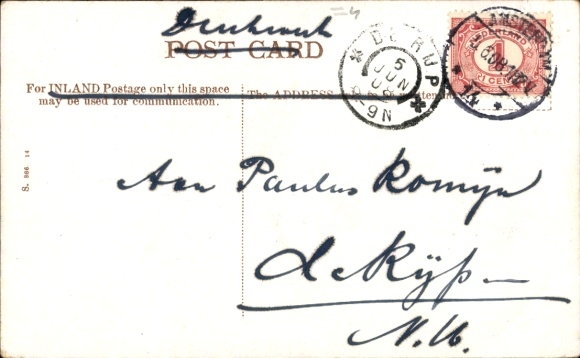 Drukwerk
=4
POST CARD
For INLAND Postage only this space
may be used for communication.
The ADDRESS
DE RIJP
5
JUN
08
8-9N
NEDERLAND
1
CENT
AMSTERDAM
S. 866 14
Aan Paulus Romijn
de Rijp
N.H.